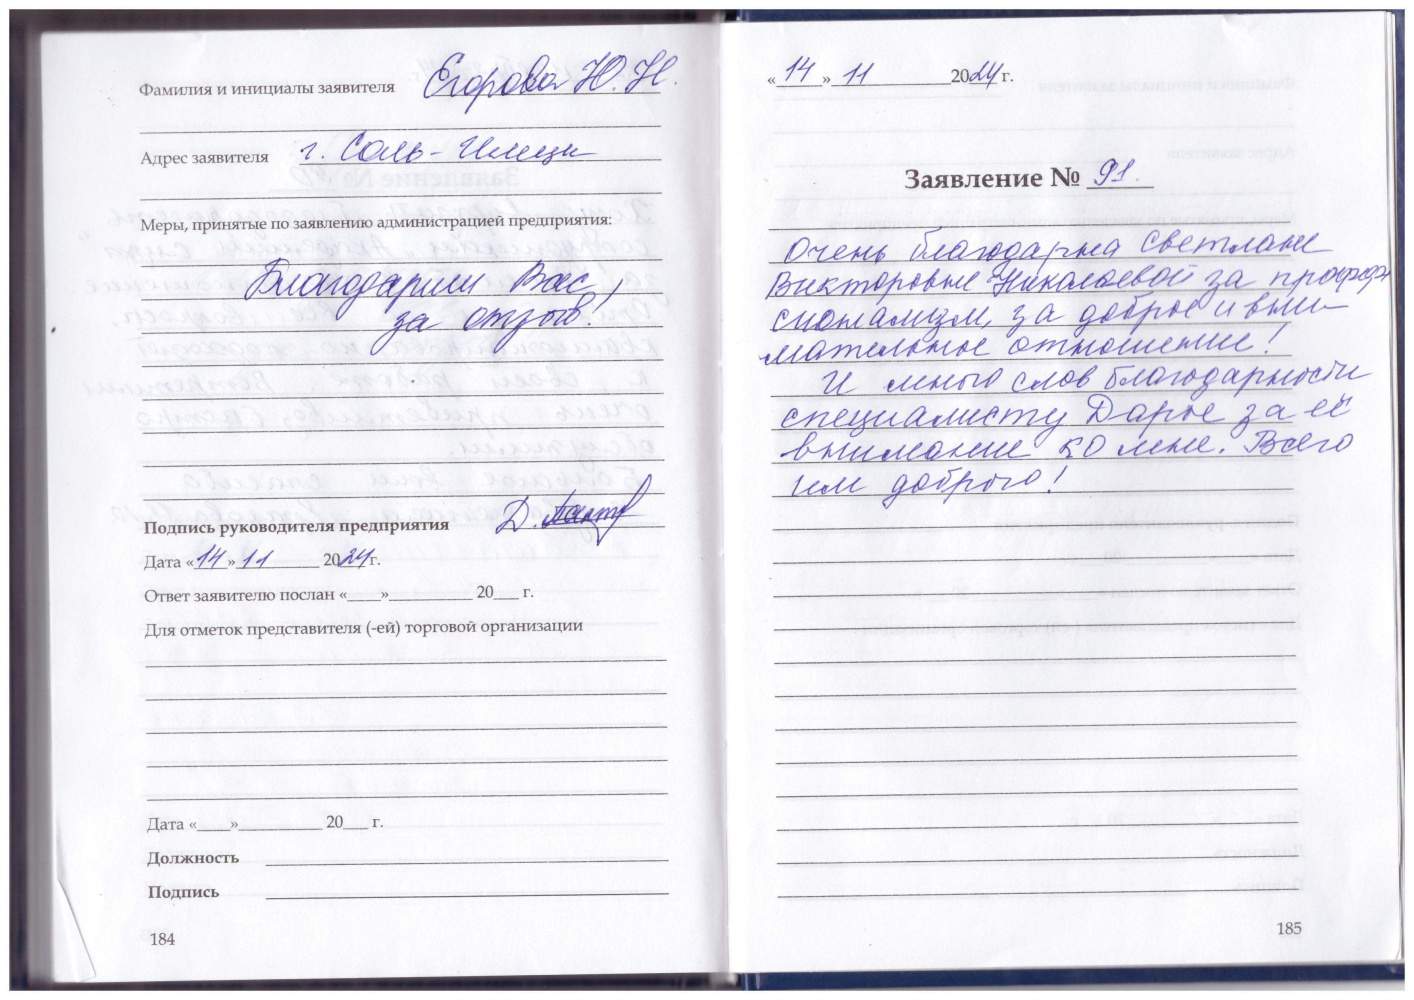 Фамилия и инициалы заявителя Егорова Н. Н.
Адрес заявителя г. Соль-Илецк
Меры, принятые по заявлению администрацией предприятия:
Благодарим Вас
за отзыв!
Подпись руководителя предприятия Д.
Дата «14» 11 2024г.
Ответ заявителю послан «____»__________ 20___ г.
Для отметок представителя (-ей) торговой организации
Дата «____»__________ 20___ г.
Должность
Подпись
184
«14» 11 2024г.
Заявление № 91.
Очень благодарна Светлане
Викторовне Николаевой за профес
сионализм, за доброе и вни-
мательное отношение!
И много слов благодарности
специалисту Дарье за её
внимание ко мне. Всего
им доброго!
185